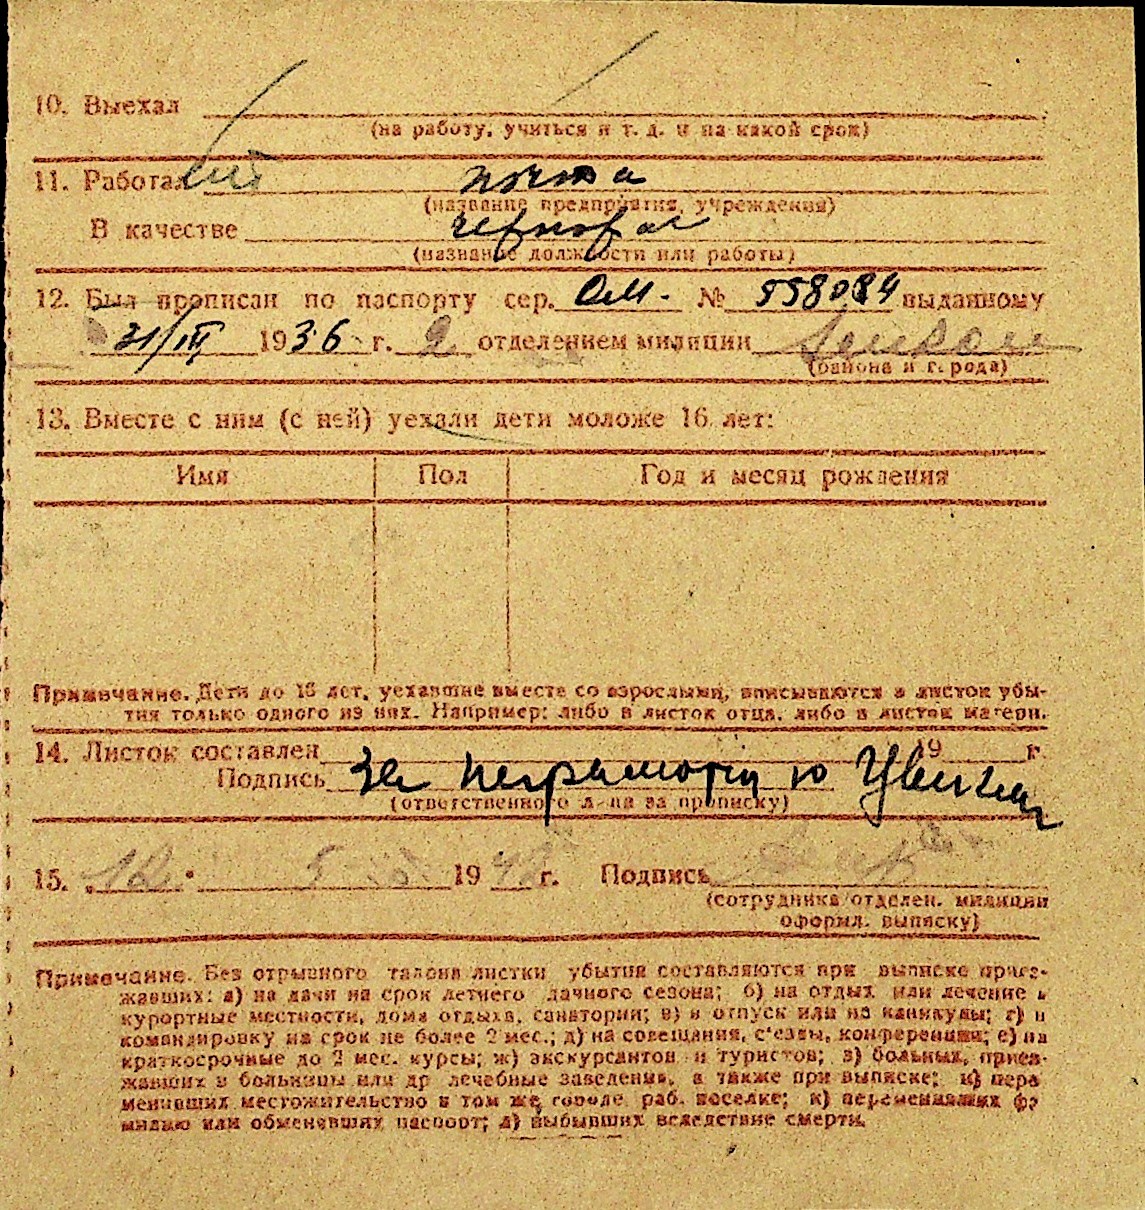 10. Выехал
(на работу, учиться и т. д. и на какой срок)
11. Работал почта
(название предприятия, учреждения)
В качестве чернораб
(название должности или работы)
12. Был прописан по паспорту сер. ОМ. № 558084 выданному
21/III 1936 г. 2 отделением милиции
(района и города)
13. Вместе с ним (с ней) уехали дети моложе 16 лет:
Имя Пол Год и месяц рождения
Примечание. Дети до 16 лет, уехавшие вместе со взрослыми, вписываются в листок убы-
тия только одного из них. Например: либо в листок отца, либо в листок матери.
14. Листок составлен 19 г.
Подпись за неграмотную
(ответственного л-ца за прописку)
15. „12“ 5 1942 г. Подпись
(сотрудника отделен. милиции
оформл. выписку)
Примечание. Без отрывного талона листки убытия составляются при выписке приез-
жавших: а) на дачи на срок летнего дачного сезона; б) на отдых или лечение в
курортные местности, дома отдыха, санатории; в) в отпуск или на каникулы; г) в
командировку на срок не более 2 мес.; д) на совещания, с'езды, конференции; е) на
краткосрочные до 2 мес. курсы; ж) экскурсантов и туристов; з) больных, приез-
жавших в больницы или др лечебные заведения, а также при выписке; и) пере
менивших местожительство в том же городе, раб. поселке; к) переменивших фа
милию или обменявших паспорт; л) выбывших вследствие смерти.